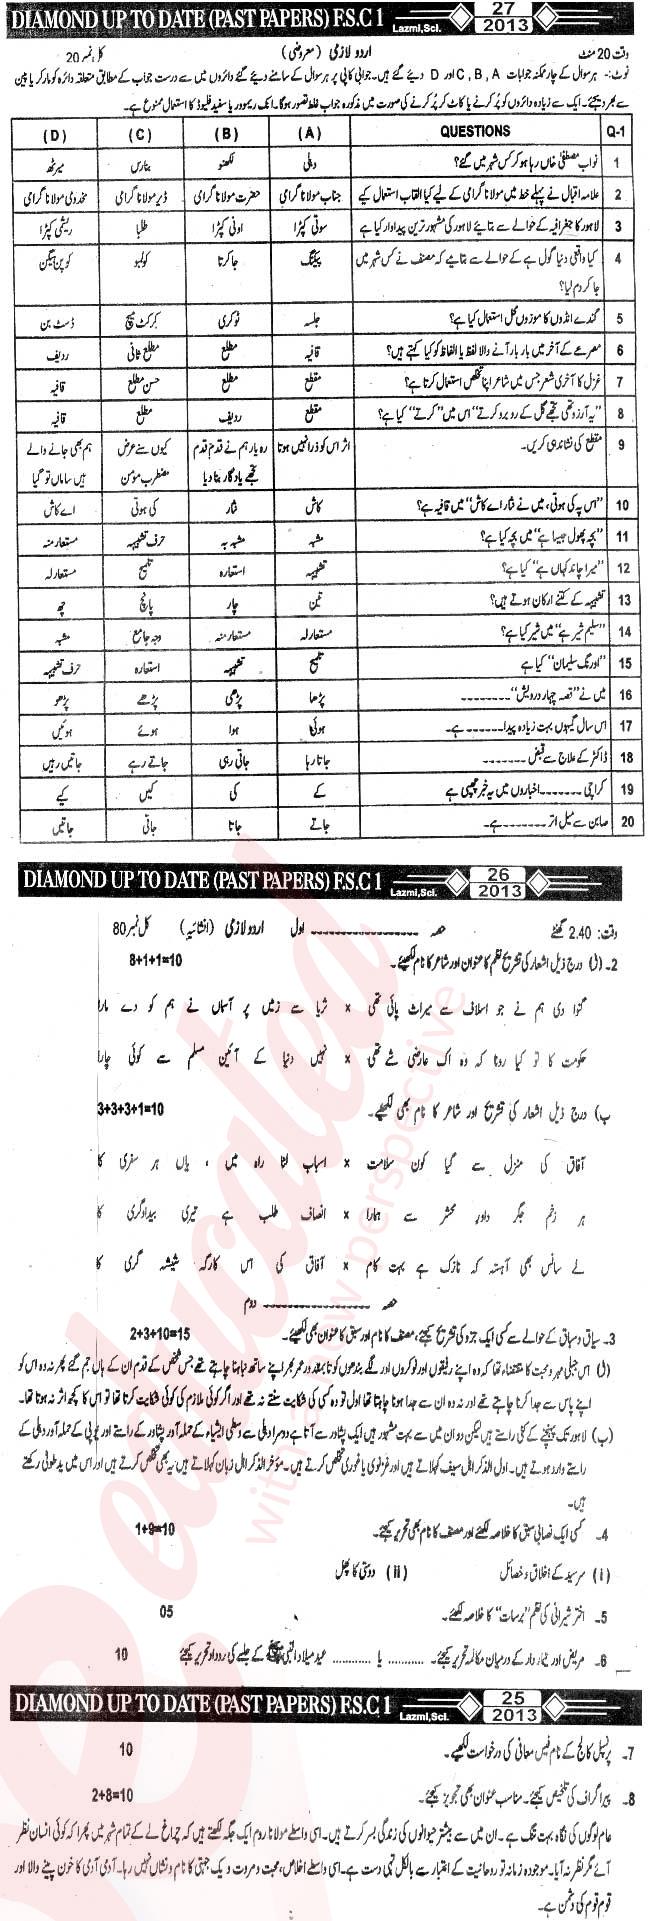 DIAMOND UP TO DATE (PAST PAPERS) F.S.C 1 Lazmi,Sci. 27 2013
وقت 20 منٹ اردو لازمی (معروضی) کل نمبر 20
نوٹ:- ہر سوال کے چار ممکنہ جوابات A ,B ,C اور D دیئے گئے ہیں۔ جوابی کاپی پر ہر سوال کے سامنے دیئے گئے دائروں میں سے درست جواب کے مطابق متعلقہ دائرہ کو مارکر یا پین
سے بھر دیجئے۔ ایک سے زیادہ دائروں کو پُر کرنے یا کاٹ کر پُر کرنے کی صورت میں مذکورہ جواب غلط تصور ہوگا۔ انک ریموور یا سفید فلیوڈ کا استعمال ممنوع ہے۔
Q-1 QUESTIONS (A) (B) (C) (D)
1 نواب مصطفیٰ خاں رہا ہو کر کس شہر میں گئے؟ دہلی لکھنو بنارس میرٹھ
2 علامہ اقبال نے پہلے خط میں مولانا گرامی کے لیے کیا القاب استعمال کیے جناب مولانا گرامی حضرت مولانا گرامی ڈیر مولانا گرامی مخدومی مولانا گرامی
3 لاہور کا جغرافیہ کے حوالے سے بتایئے لاہور کی مشہور ترین پیداوار کیا ہے سوتی کپڑا اونی کپڑا طلبا ریشمی کپڑا
4 کیا واقعی دنیا گول ہے کے حوالے سے بتایئے کہ مصنف نے کس شہر میں پیکنگ جاکرتا کولمبو کوپن ہیگن
جا کر دم لیا؟
5 گندے انڈوں کا موزوں محل استعمال کیا ہے؟ جلسہ ٹوکری کرکٹ میچ ڈسٹ بن
6 مصرعے کے آخر میں بار بار آنے والا لفظ یا الفاظ کو کیا کہتے ہیں؟ قافیہ مطلع مطلع ثانی ردیف
7 غزل کا آخری شعر جس میں شاعر اپنا تخلص استعمال کرتا ہے؟ مقطع مطلع حسن مطلع قافیہ
8 "یہ آرزو تھی تجھے گل کے روبرو کرتے" اس میں "کرتے" کیا ہے؟ مقطع ردیف مطلع قافیہ
9 مقطع کی نشاندہی کریں۔ اثر اس کو ذرا نہیں ہوتا رہ یار ہم نے قدم قدم کیوں سنے عرض ہم بھی جانے والے
تجھے یادگار بنا دیا مضطرب مومن ہیں ساماں تو گیا
10 "اس پہ کی ہوتی، میں نے نثار اے کاش" میں قافیہ ہے؟ کاش نثار کی ہوتی اے کاش
11 "بچہ پھول جیسا ہے" میں بچہ کیا ہے؟ مشبہ مشبہ بہ حرف تشبیہہ مستعار منہ
12 "میرا چاند کہاں ہے" کیا ہے؟ تشبیہہ استعارہ تلمیح مستعار لہ
13 تشبیہہ کے کتنے ارکان ہوتے ہیں؟ تین چار پانچ چھ
14 "سلیم شیر ہے" میں شیر کیا ہے؟ مستعار لہ مستعار منہ وجہ جامع مشبہ
15 "اورنگ سلیمان" کیا ہے تلمیح تشبیہہ استعارہ حرف تشبیہہ
16 میں نے "قصہ چہار درویش"-------- پڑھا پڑھی پڑھے پڑھو
17 اس سال گیہوں بہت زیادہ پیدا------ہے۔ ہوئی ہوا ہوئے ہوئیں
18 ڈاکٹر کے علاج سے قبض------- جاتا رہا جاتی رہی جاتے رہے جاتیں رہیں
19 کراچی ------- اخباروں میں یہ خبر چھپی ہے کے کی کیں کیے
20 صابن سے میل اتر --------ہے۔ جاتے جاتا جاتی جاتیں
DIAMOND UP TO DATE (PAST PAPERS) F.S.C 1 Lazmi,Sci. 26 2013
وقت: 2.40 گھنٹے حصہ ------------ اول اردو لازمی (انشائیہ) کل نمبر 80
2۔ (ا) درج ذیل اشعار کی تشریح نظم کا عنوان اور شاعر کا نام لکھیئے۔ 8+1+1=10
گنوا دی ہم نے جو اسلاف سے میراث پائی تھی × ثریا سے زمیں پر آسماں نے ہم کو دے مارا
حکومت کا تو کیا رونا کہ وہ اک عارضی شے تھی × نہیں دنیا کے آئین مسلم سے کوئی چارا
ب) درج ذیل اشعار کی تشریح اور شاعر کا نام بھی لکھیئے۔ 3+3+3+1=10
آفاق کی منزل سے گیا کون سلامت × اسباب لٹا راہ میں ، یاں ہر سفری کا
ہر زخم جگر داور محشر سے ہمارا × انصاف طلب ہے تیری بیدادگری کا
لے سانس بھی آہستہ کہ نازک ہے بہت کام × آفاق کی اس کارگہ شیشہ گری کا
حصہ ------------ دوم
3۔ سیاق و سباق کے حوالے سے کسی ایک جزو کی تشریح کیجئے، مصنف کا نام اور سبق کا عنوان بھی لکھیئے۔ 2+3+10=15
(ا) اس جبلی مہر و محبت کا مقتضاء تھا کہ وہ اپنے رفیقوں اور نوکروں اور لگے بندھوں کو تا بمقدور عمر بھر اپنے ساتھ نباہنا چاہتے تھے جس شخص کے قدم ان کے ہاں جم گئے پھر نہ وہ اس کو
اپنے پاس سے جدا کرنا چاہتے تھے اور نہ وہ ان سے جدا ہونا چاہتا تھا اول تو وہ کسی کی شکایت سنتے نہ تھے اور اگر کوئی ملازم کی کوئی شکایت کرتا تھا تو اس کا کچھ اثر نہ ہوتا تھا۔
(ب) لاہور تک پہنچنے کے کئی راستے ہیں لیکن دو ان میں سے بہت مشہور ہیں ایک پشاور سے آتا ہے دوسرا دہلی سے وسطی ایشیاء کے حملہ آور پشاور کے راستے اور یوپی کے حملہ آور دہلی کے
راستے وارد ہوتے ہیں۔ اول الذکر اہل سیف کہلاتے ہیں اور غزنوی یا غوری تخلص کرتے ہیں۔ مؤخر الذکر اہل زبان کہلاتے ہیں یہ بھی تخلص کرتے ہیں اور اس میں ید طولیٰ رکھتے
ہیں۔
4۔ کسی ایک نصابی سبق کا خلاصہ لکھئے اور مصنف کا نام بھی تحریر کیجئے۔ 1+9=10
(i) سرسید کے اخلاق و خصائل (ii) دوستی کا پھل
5۔ اختر شیرانی کی نظم "برسات" کا خلاصہ لکھیئے۔ 05
6۔ مریض اور تیماردار کے درمیان مکالمہ تحریر کیجئے۔ ........... یا ........... عید میلاد النبی ﷺ کے جلسے کی روداد تحریر کیجئے 10
DIAMOND UP TO DATE (PAST PAPERS) F.S.C 1 Lazmi,Sci. 25 2013
7۔ پرنسپل کالج کے نام فیس معافی کی درخواست لکھیے۔ 10
8۔ پیراگراف کی تلخیص کیجئے۔ مناسب عنوان بھی تجویز کیجئے۔ 2+8=10
عام لوگوں کی نگاہ بہت تنگ ہے۔ ان میں سے بیشتر حیوانوں کی زندگی بسر کرتے ہیں۔ اسی واسطے مولانا روم ایک جگہ لکھتے ہیں کہ چراغ لے کے تمام شہر میں پھرا کہ کوئی انسان نظر
آئے مگر نظر نہ آیا۔ موجودہ زمانہ تو روحانیت کے اعتبار سے بالکل تہی دست ہے۔ اسی واسطے اخلاص، محبت و مروت و یک جہتی کا نام و نشاں نہیں رہا۔ آدمی آدمی کا خون پینے والا اور
قوم قوم کی دشمن ہے۔
educated
with a new perspective